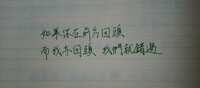 如果你在前方回頭
而我亦回頭 我們就錯過